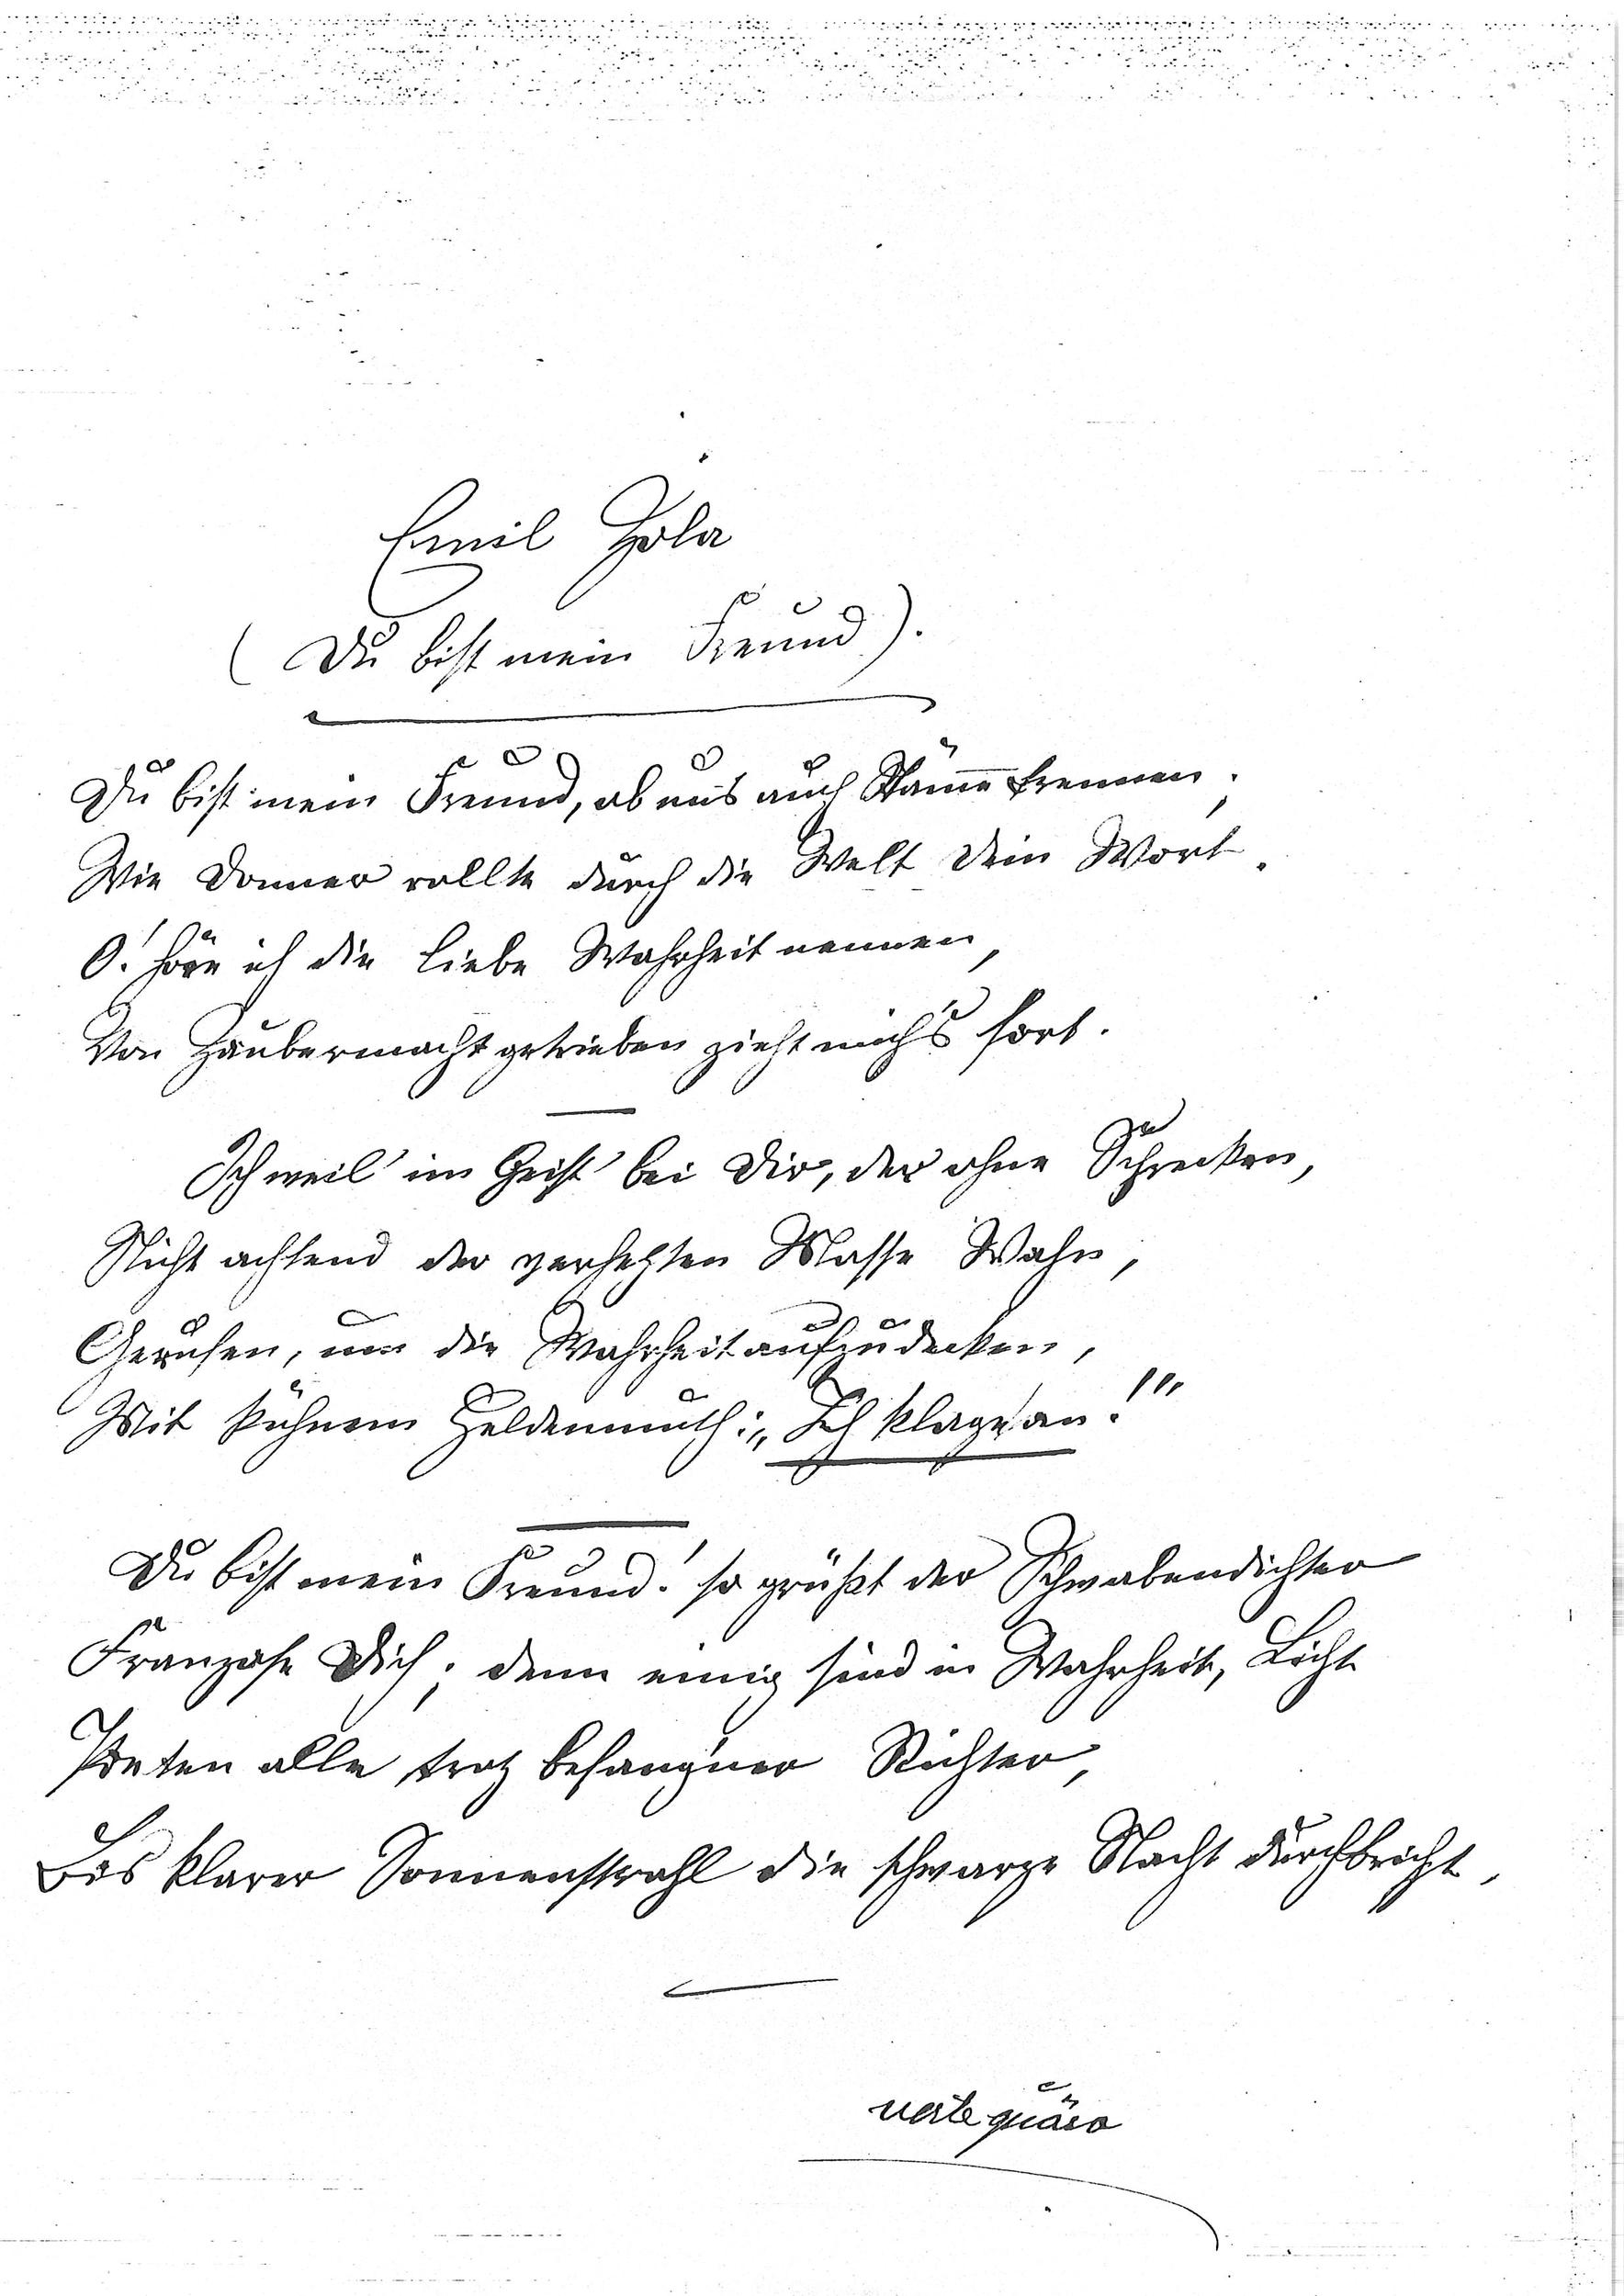 Emil Zola
(Du bist mein Freund).
Du bist mein Freund, ob uns auch Stämme trennen;
Wie Donner rollte durch die Welt Dein Wort.
O! höre ich die liebe Wahrheit nennen,
Von Zaubermacht getrieben zieht mich's fort.
Ich weil' im Geist' bei Dir, der ohne Schrecken,
Nicht achtend der verhetzten Masse Wahn,
Gerufen, um die Wahrheit aufzudecken,
Mit kühnem Heldenmuth: „Ich klage an!"
Du bist mein Freund! so grüßt der Schwabendichter
Franzose Dich; denn einig sind in Wahrheit, Licht
Poeten alle trotz befang'ner Richter,
Bis klarer Sonnenstrahl die schwarze Nacht durchbricht,
verte quäso